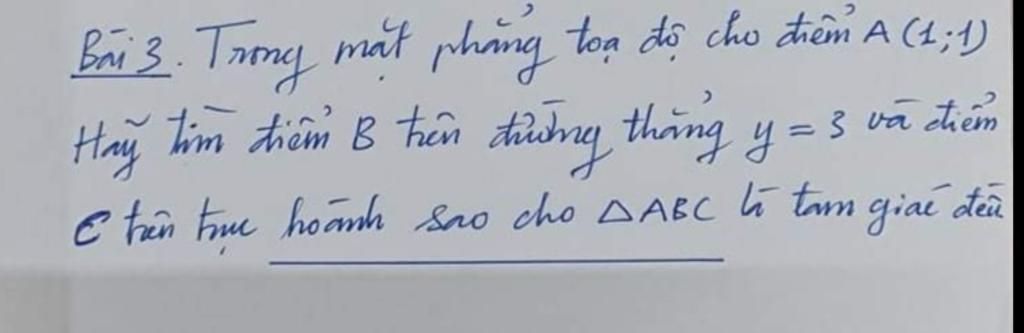 Bài 3. Trong mặt phẳng toạ độ cho điểm A (1;1)
Hãy tìm điểm B trên đường thẳng y = 3 và điểm
C trên trục hoành sao cho △ABC là tam giác đều